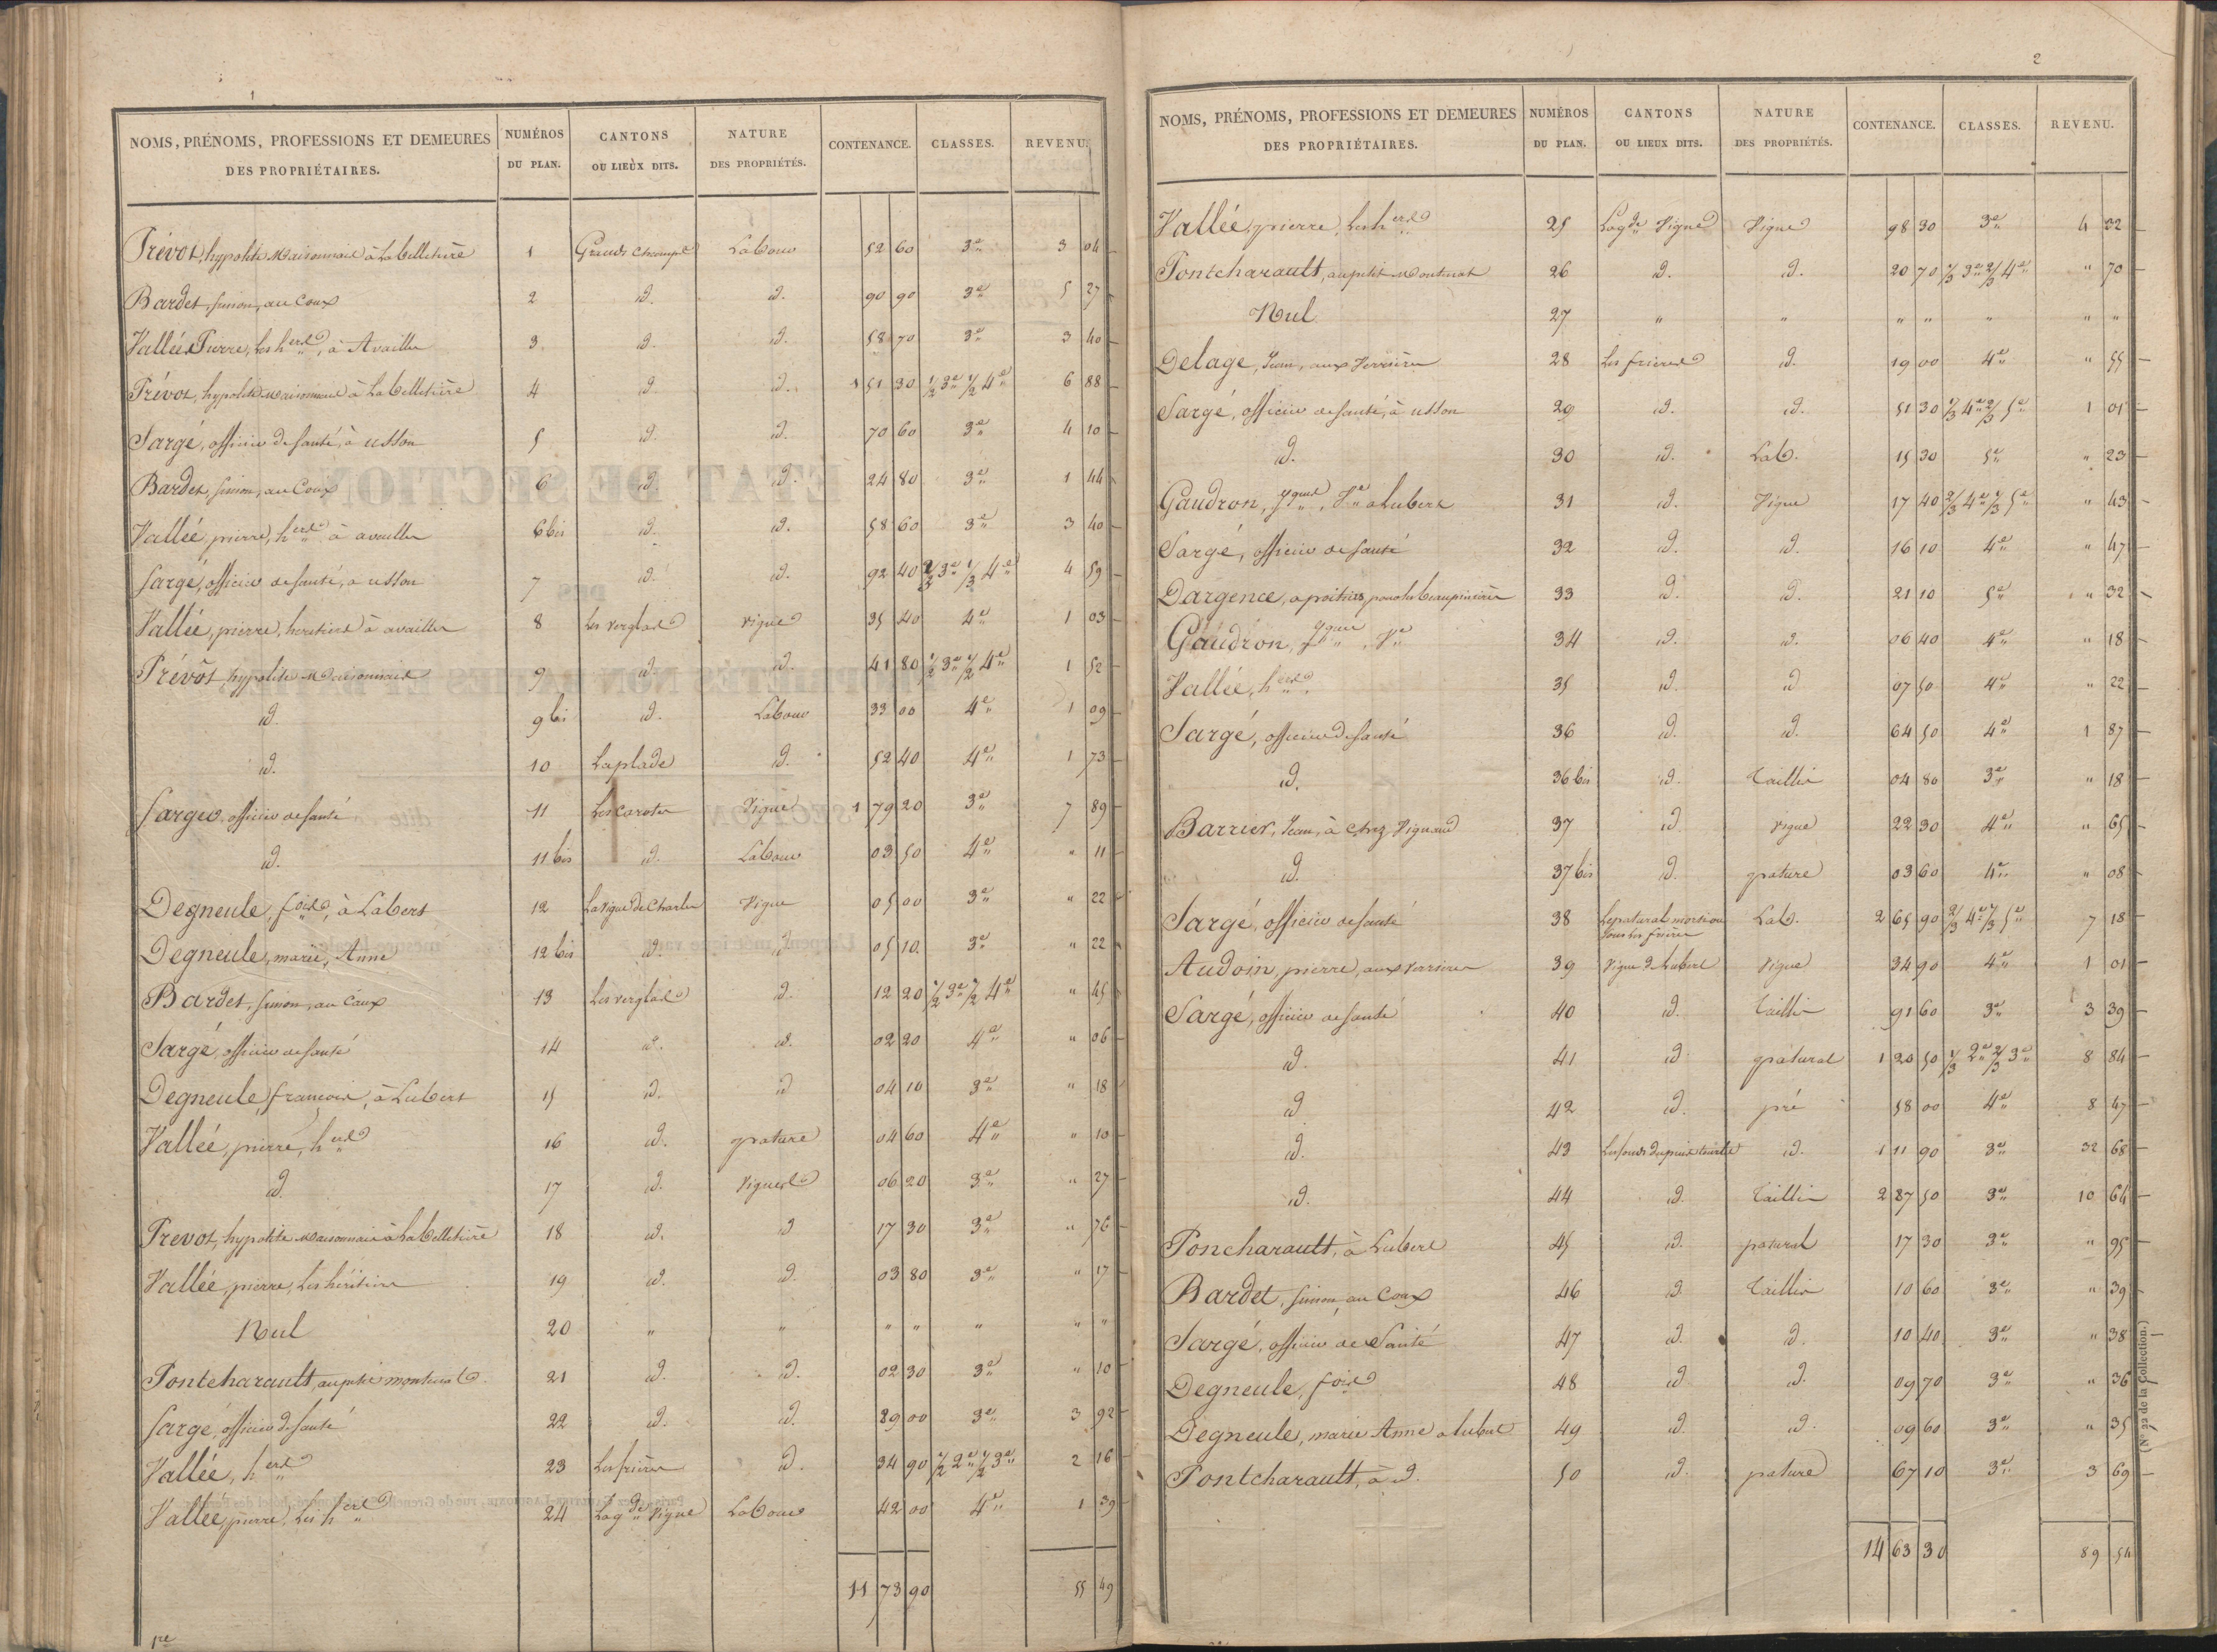 1
NOMS, PRÉNOMS, PROFESSIONS ET DEMEURES DES PROPRIÉTAIRES. NUMÉROS DU PLAN. CANTONS OU LIEUX DITS. NATURE DES PROPRIÉTÉS. CONTENANCE. CLASSES. REVENU.
Prévot, hypolite Maisonnais à Labelletière 1 Grands Champs Labour 52 60 3e 3 04
Bardet, Simon, au Coux 2 id. id. 90 90 3e 5 27
Vallée Pierre, les herd, à Availler 3 id. id. 58 70 3e 3 40
Prévot, hypolite Maisonnais à Labelletière 4 id id. 1 51 30 1/2 3e 1/2 4e 6 88
Sargé, officier de santé, à Usson 5 id. id. 70 60 3e 4 10
Bardet, Simon, au Coux 6 id. id. 24 80 3e 1 44
Vallée pierre, herd à availler 6 bis id. id. 58 60 3e 3 40
Sargé, officier de santé, à usson 7 id. id. 92 40 2/3 3e 1/3 4e 4 59
Vallée, pierre, heritiers à availler 8 Les verglas vigne 35 40 4e 1 03
Prévot hypolite Maisonnais 9 id. id. 41 80 1/2 3e 1/2 4e 1 52
id. 9 bis id. Labour 33 00 4e 1 09
id. 10 Laplade id. 52 40 4e 1 73
Sargé, officier de santé 11 Vigne 1 79 20 3e 7 89
id. 11 bis id. Labour 03 50 4e " 11
Degneule, fois, à Labert 12 La vigne de Charles Vigne 05 00 3e " 22
Degneule, marie, Anne 12 bis id. id 05 10 3e " 22
Bardet, Simon, au Coux 13 Les verglas id. 12 20 1/2 3e 1/2 4e " 45
Sargé, officier de santé 14 id. id. 02 20 4e " 06
Degneule, françois, à Lubert 15 id. id 04 10 3e " 18
Vallée, pierre, herd 16 id. pature 04 60 4e " 10
id. 17 id. Vignes 06 20 3e " 27
Prevot, hypolite Maisonnais à Labelletière 18 id. id 17 30 3e " 76
Vallée, pierre, les héritiers 19 id. id. 03 80 3e " 17
Nul 20 " " " " " " "
Pontcharault, au petit 21 id. id. 02 30 3e " 10
Sargé, officier de santé 22 id. id. 89 00 3e 3 92
Vallée, herd 23 Les frières id. 34 90 1/2 2e 1/2 3e 2 16
Vallée, pierre, les herd 24 La gde Vigne Labour 42 00 4e 1 39
11 73 90 55 49
1re
2
NOMS, PRÉNOMS, PROFESSIONS ET DEMEURES DES PROPRIÉTAIRES. NUMÉROS DU PLAN. CANTONS OU LIEUX DITS. NATURE DES PROPRIÉTÉS. CONTENANCE. CLASSES. REVENU.
Vallée, pierre, les herd 25 La gde Vigne Vigne 98 30 3e 4 32
Pontcharault, au petit 26 id. id. 20 70 1/3 3e 2/3 4e " 70
Nul 27 " " " " " " "
Delage, Jean, aux Verrières 28 Les frières id. 19 00 4e " 55
Sargé, officier de santé, à usson 29 id. id. 51 30 1/3 4e 2/3 5e 1 01
id. 30 id. Lab. 15 30 5e " 23
Gaudron, Jques, Ve à Lubert 31 id. Vigne 17 40 2/3 4e 1/3 5e " 43
Sargé, officier de santé 32 id. id. 16 10 4e " 47
Dargence, à poitiers 33 id. id. 21 10 5e " 32
Gaudron, Jques, Ve 34 id. id. 06 40 4e " 18
Vallée, herd 35 id. id 07 50 4e " 22
Sargé, officier de santé 36 id. id. 64 50 4e 1 87
id. 36 bis id. Taillis 04 80 3e " 18
Barrier, Jean, à Chez Vignaud 37 id vigne 22 30 4e " 65
id. 37 bis id. pature 03 60 4e " 08
Sargé, officier de santé 38 Lab. 2 65 90 2/3 4e 1/3 5e 7 18
Audoin, pierre, aux Verrières 39 Vigne de Lubert Vigne 34 90 4e 1 01
Sargé, officier de santé 40 id. Taillis 91 60 3e 3 39
id. 41 id. patural 1 20 50 1/3 2e 2/3 3e 8 84
id 42 id. pré 58 00 4e 8 47
id. 43 id. 1 11 90 3e 32 68
id. 44 id. Taillis 2 87 50 3e 10 64
Poncharault, à Lubert 45 id. patural 17 30 3e " 95
Bardet, Simon, au Coux 46 id. Taillis 10 60 3e " 39
Sargé, officier de Santé 47 id. id. 10 40 3e " 38
Degneule, fois 48 id id. 09 70 3e " 36
Degneule, marie Anne à lubert 49 id id. 09 60 3e " 35
Pontcharault, à id. 50 id. pature 67 10 3e 3 69
14 63 30 89 54
(N° 22 de la Collection.)